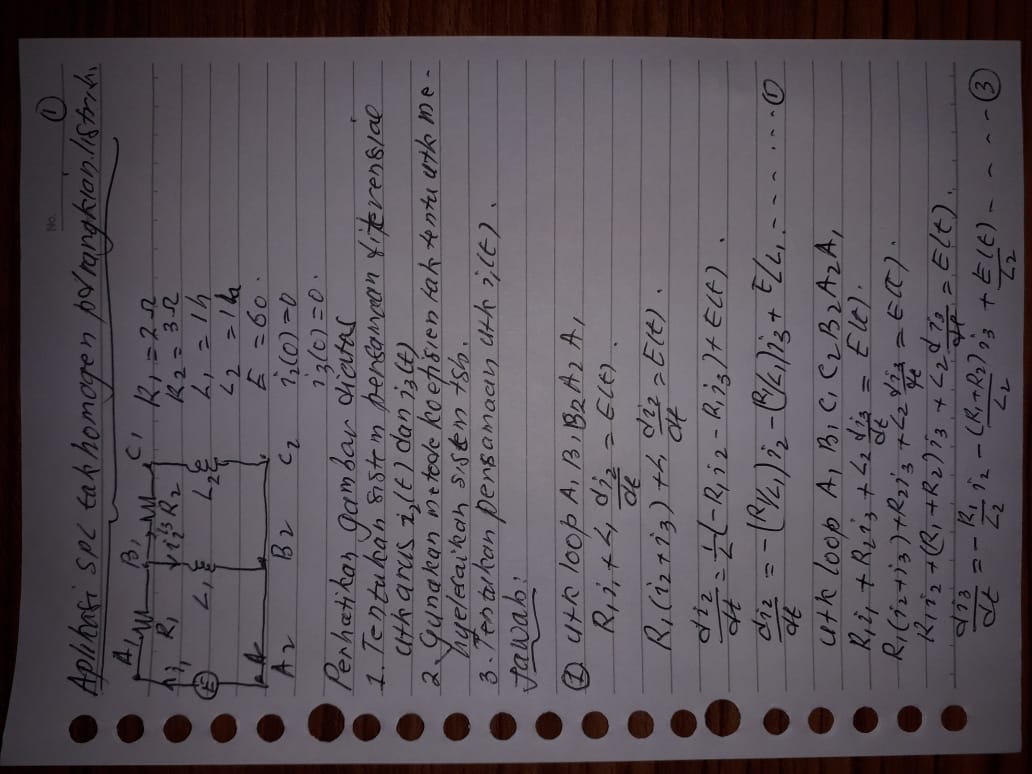 No. ①
Aplikasi SPL tak homogen pd rangkaian listrik.
A₁ B₁ C₁
R₁ i₂ i₃ R₂
i₁
E L₁ L₂
A
A₂ B₂ C₂
R₁ = 2 Ω
R₂ = 3 Ω
L₁ = 1 h
L₂ = 1 h
E = 60.
i₂(0) = 0
i₃(0) = 0.
Perhatikan gambar diatas
1. Tentukan sistem persamaan diferensial
utk arus i₂(t) dan i₃(t)
2. Gunakan metode koefisien tak tentu utk me-
nyelesaikan sistem tsb.
3. Tentukan persamaan utk i₁(t).
Jawab:
① utk loop A₁ B₁ B₂ A₂ A₁
R₁i₁ + L₁ di₂/dt = E(t).
R₁(i₂ + i₃) + L₁ di₂/dt = E(t).
di₂/dt = 1/L (-R₁i₂ - R₁i₃) + E(t).
di₂/dt = -(R₁/L₁)i₂ - (R₁/L₁)i₃ + E/L₁ - - - - - - - - ①
utk loop A₁ B₁ C₁ C₂ B₂ A₂ A₁
R₁i₁ + R₂i₃ + L₂ di₃/dt = E(t).
R₁(i₂ + i₃) + R₂i₃ + L₂ di₃/dt = E(t).
R₁i₂ + (R₁ + R₂)i₃ + L₂ di₃/dt = E(t).
di₃/dt = - R₁/L₂ i₂ - (R₁+R₂)/L₂ i₃ + E(t)/L₂ - - - - - ③